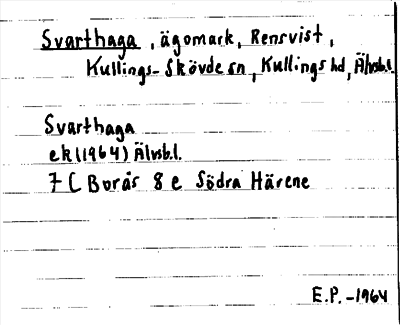 Svarthaga, ägomark, Rensvist,
Kullings-Skövde sn, Kullings hd, Älvsb.l.
Svarthaga
ek (1964) Älvsb.l.
7 C Borås 8 e Södra Härene
E.P. -1964